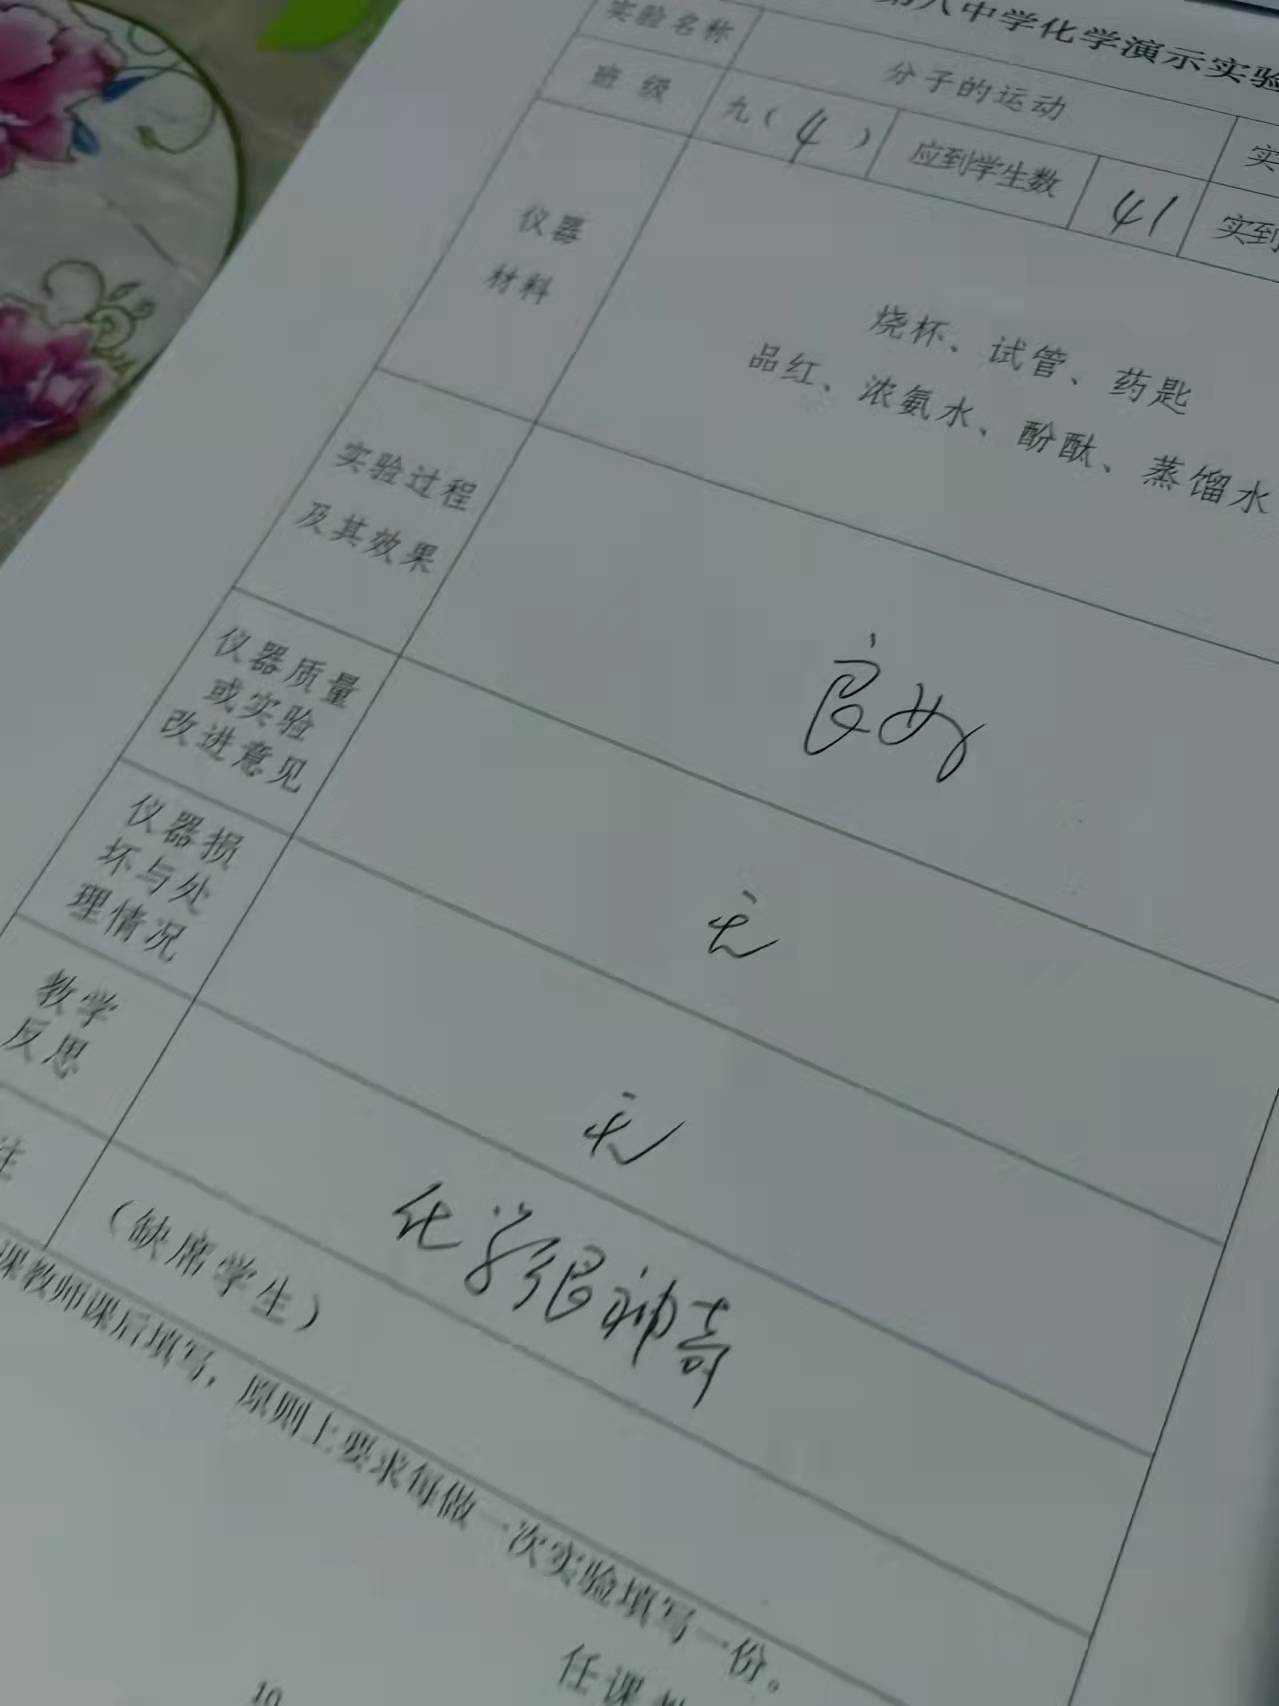 八中学化学演示实验
实验名称 分子的运动 实
班 级 九(4) 应到学生数 41 实到
仪器
材料
烧杯、试管、药匙
品红、浓氨水、酚酞、蒸馏水
实验过程
及其效果
良好
仪器质量
或实验
改进意见
无
仪器损
坏与处
理情况
无
教学
反思
化学很神奇
注
(缺席学生)
课教师课后填写,原则上要求每做一次实验填写一份。
任课
10